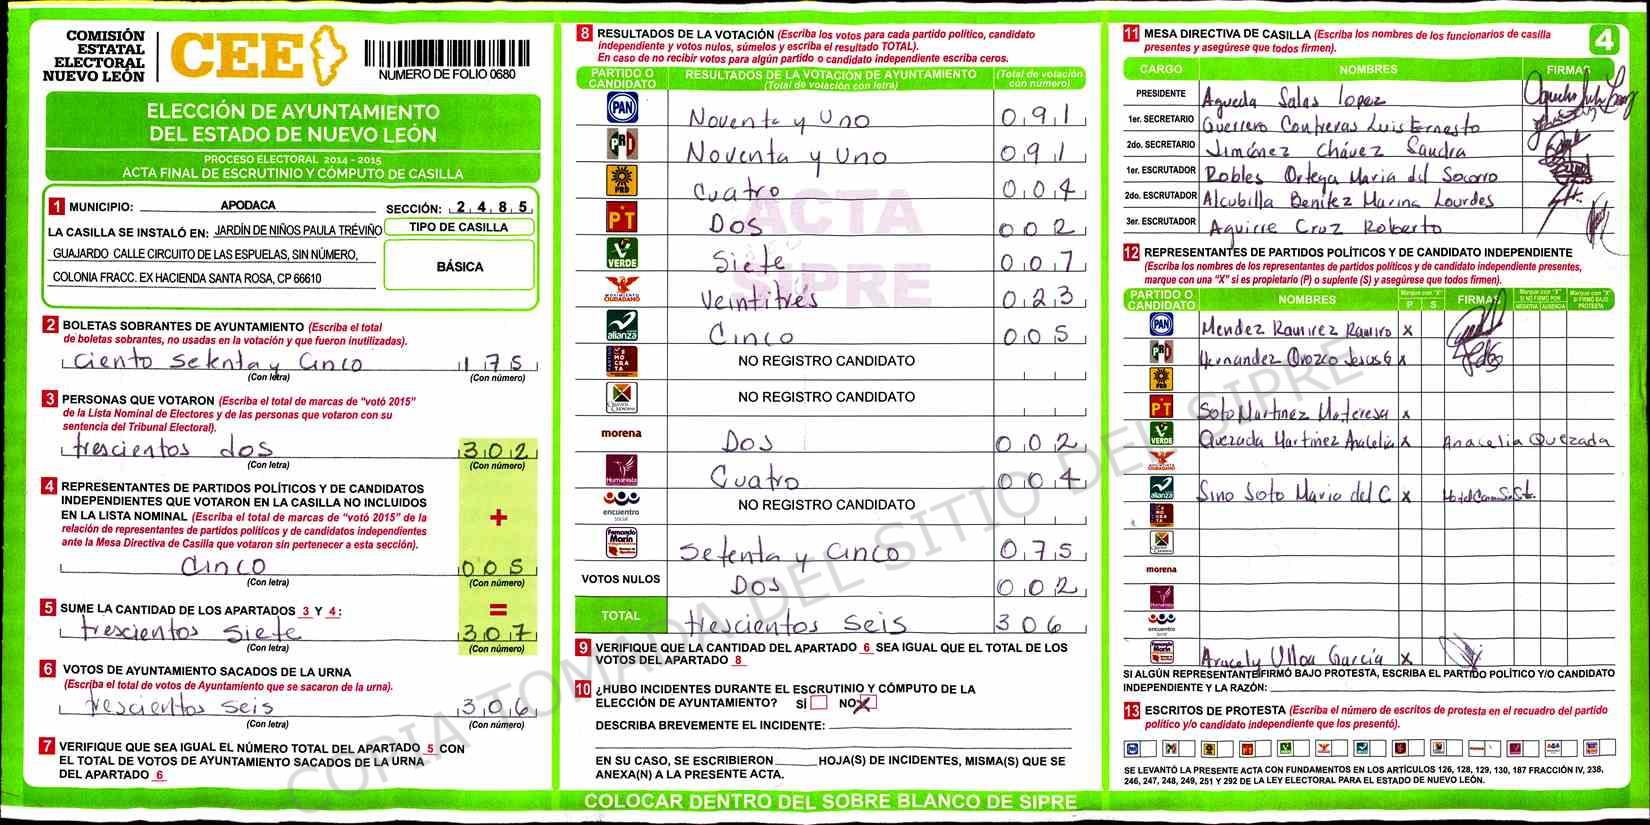 COMISIÓN
ESTATAL
ELECTORAL
NUEVO LEÓN
CEE
NUMERO DE FOLIO 0680
ELECCIÓN DE AYUNTAMIENTO
DEL ESTADO DE NUEVO LEÓN
PROCESO ELECTORAL 2014 - 2015
ACTA FINAL DE ESCRUTINIO Y CÓMPUTO DE CASILLA
1 MUNICIPIO: APODACA SECCIÓN: 2 4 8 5
LA CASILLA SE INSTALÓ EN: JARDÍN DE NIÑOS PAULA TRÉVIÑO
GUAJARDO CALLE CIRCUITO DE LAS ESPUELAS, SIN NÚMERO,
COLONIA FRACC. EX HACIENDA SANTA ROSA, CP 66610
TIPO DE CASILLA
BÁSICA
2 BOLETAS SOBRANTES DE AYUNTAMIENTO (Escriba el total
de boletas sobrantes, no usadas en la votación y que fueron inutilizadas).
Ciento setenta y Cinco 175
(Con letra) (Con número)
3 PERSONAS QUE VOTARON (Escriba el total de marcas de "votó 2015"
de la Lista Nominal de Electores y de las personas que votaron con su
sentencia del Tribunal Electoral).
trescientos dos 302
(Con letra) (Con número)
4 REPRESENTANTES DE PARTIDOS POLÍTICOS Y DE CANDIDATOS
INDEPENDIENTES QUE VOTARON EN LA CASILLA NO INCLUIDOS
EN LA LISTA NOMINAL (Escriba el total de marcas de "votó 2015" de la
relación de representantes de partidos políticos y de candidatos independientes
ante la Mesa Directiva de Casilla que votaron sin pertenecer a esta sección).
+
Cinco 005
(Con letra) (Con número)
5 SUME LA CANTIDAD DE LOS APARTADOS 3 Y 4: =
trescientos siete 307
(Con letra) (Con número)
6 VOTOS DE AYUNTAMIENTO SACADOS DE LA URNA
(Escriba el total de votos de Ayuntamiento que se sacaron de la urna).
trescientos seis 306
(Con letra) (Con número)
7 VERIFIQUE QUE SEA IGUAL EL NÚMERO TOTAL DEL APARTADO 5 CON
EL TOTAL DE VOTOS DE AYUNTAMIENTO SACADOS DE LA URNA
DEL APARTADO 6
8 RESULTADOS DE LA VOTACIÓN (Escriba los votos para cada partido político, candidato
independiente y votos nulos, súmelos y escriba el resultado TOTAL).
En caso de no recibir votos para algún partido o candidato independiente escriba ceros.
PARTIDO O CANDIDATO RESULTADOS DE LA VOTACIÓN DE AYUNTAMIENTO (Total de votación con letra) (Total de votación con número)
PAN Noventa y Uno 091
PRD Noventa y Uno 091
PRD Cuatro 004
PT Dos 002
VERDE Siete 007
MOVIMIENTO CIUDADANO Veintitrés 023
alianza Cinco 005
NO REGISTRO CANDIDATO
NO REGISTRO CANDIDATO
morena Dos 002
Humanista Cuatro 004
encuentro social NO REGISTRO CANDIDATO
Fernando Marín Setenta y Cinco 075
VOTOS NULOS Dos 002
TOTAL trescientos seis 306
ACTA
SIPRE
9 VERIFIQUE QUE LA CANTIDAD DEL APARTADO 6 SEA IGUAL QUE EL TOTAL DE LOS
VOTOS DEL APARTADO 8
10 ¿HUBO INCIDENTES DURANTE EL ESCRUTINIO Y CÓMPUTO DE LA
ELECCIÓN DE AYUNTAMIENTO? SÍ NO X
DESCRIBA BREVEMENTE EL INCIDENTE:
EN SU CASO, SE ESCRIBIERON HOJA(S) DE INCIDENTES, MISMA(S) QUE SE
ANEXA(N) A LA PRESENTE ACTA.
COLOCAR DENTRO DEL SOBRE BLANCO DE SIPRE
11 MESA DIRECTIVA DE CASILLA (Escriba los nombres de los funcionarios de casilla
presentes y asegúrese que todos firmen).
4
CARGO NOMBRES FIRMAS
PRESIDENTE Agueda Salas lopez
1er. SECRETARIO Guerrero Contreras Luis Ernesto
2do. SECRETARIO Jiménez Chávez Sandra
1er. ESCRUTADOR Robles Ortega Maria del Socorro
2do. ESCRUTADOR Alcubilla Benitez Marina Lourdes
3er. ESCRUTADOR Aguirre Cruz Roberto
12 REPRESENTANTES DE PARTIDOS POLÍTICOS Y DE CANDIDATO INDEPENDIENTE
(Escriba los nombres de los representantes de partidos políticos y de candidato independiente presentes,
marque con una "X" si es propietario (P) o suplente (S) y asegúrese que todos firmen).
PARTIDO O CANDIDATO NOMBRES Marque con "X" P S FIRMAS Marque con "X" SI NO FIRMÓ POR NEGATIVA AUSENCIA Marque con "X" SI FIRMÓ BAJO PROTESTA
PAN Mendez Ramirez Ramiro X
Hernandez Orozco Jesus G X
PRD
PT Soto Martinez Ma teresa X
VERDE Quezada Martinez Anacelia X Anacelia Quezada
alianza Sino Soto Maria del C X
morena
Humanista
encuentro social
Aracely Ulloa García X
SI ALGÚN REPRESENTANTE FIRMÓ BAJO PROTESTA, ESCRIBA EL PARTIDO POLÍTICO Y/O CANDIDATO
INDEPENDIENTE Y LA RAZÓN:
13 ESCRITOS DE PROTESTA (Escriba el número de escritos de protesta en el recuadro del partido
político y/o candidato independiente que los presentó).
SE LEVANTÓ LA PRESENTE ACTA CON FUNDAMENTOS EN LOS ARTÍCULOS 126, 128, 129, 130, 187 FRACCIÓN IV, 238,
246, 247, 248, 249, 251 Y 292 DE LA LEY ELECTORAL PARA EL ESTADO DE NUEVO LEÓN.
COPIA TOMADA DEL SITIO DEL SIPRE